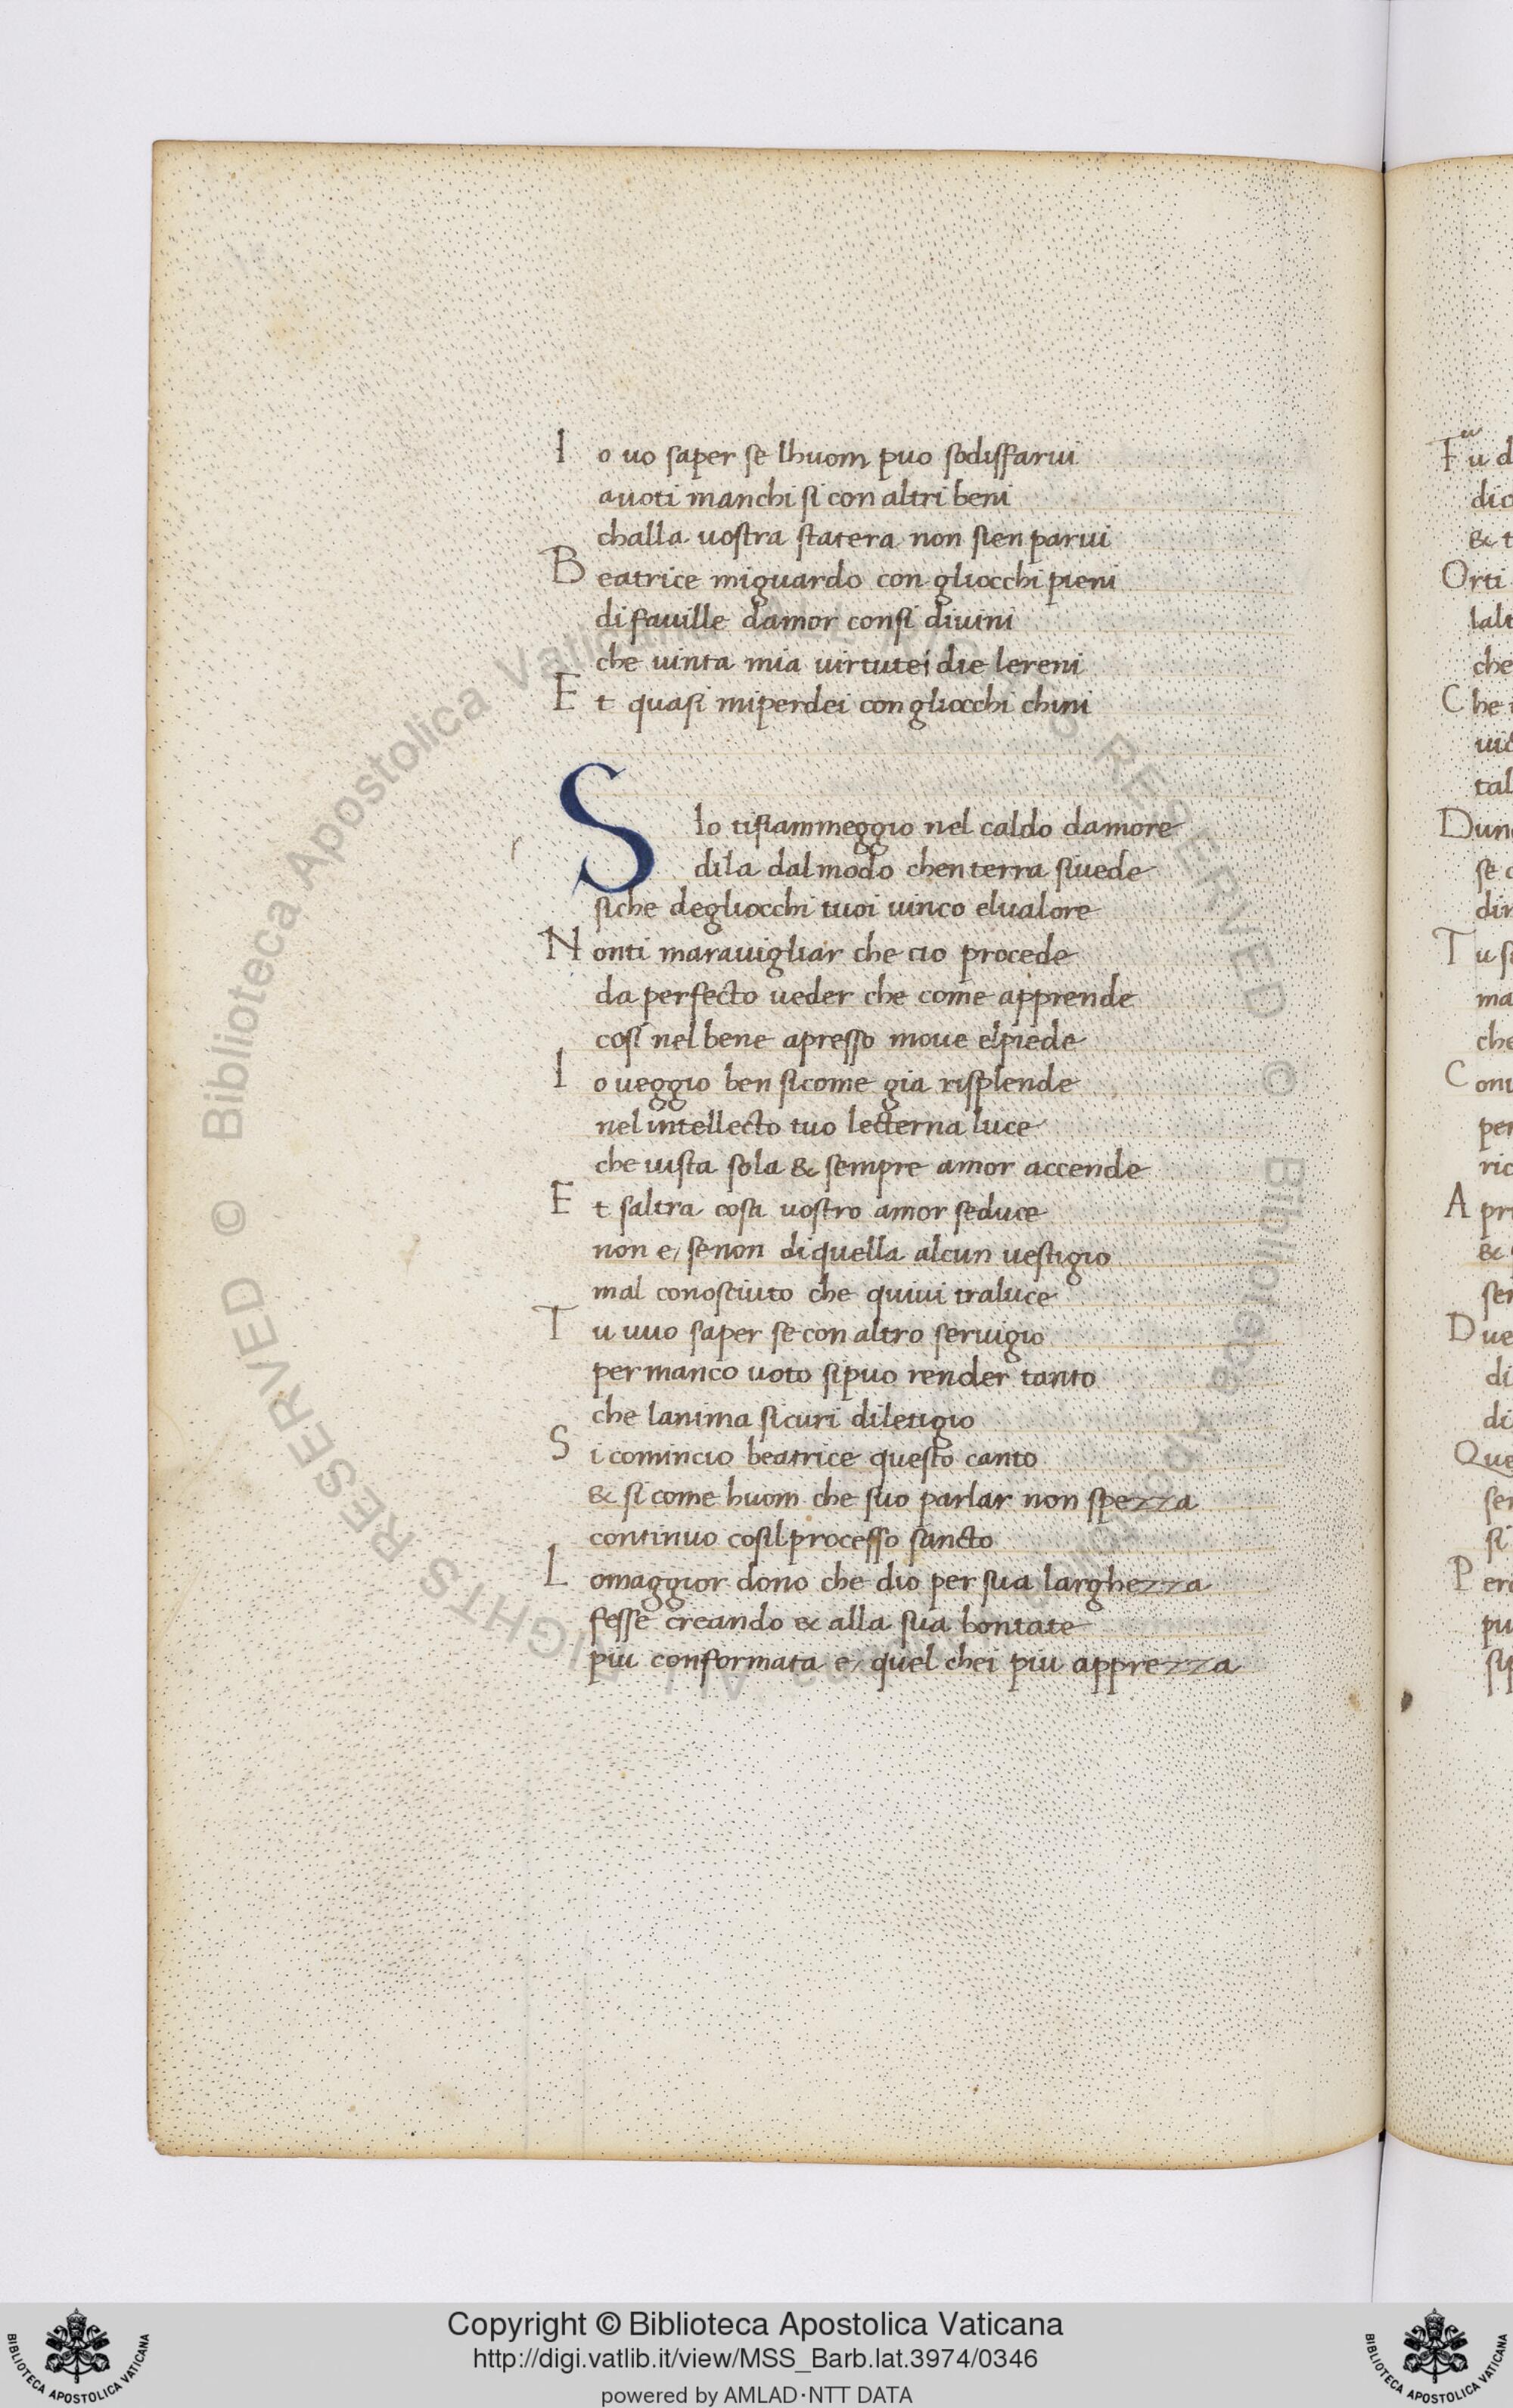 Io uo saper se lhuom puo sodisfarui
auoti manchi si con altri beni
challa uostra statera non sien parui
Beatrice miguardo con gliocchi pieni
di fauille damor consi diuini
che uinta mia uirtute die lereni
Et quasi miperdei con gliocchi chini
S Io tifiammeggio nel caldo damore
dila dal modo chenterra siuede
siche degliocchi tuoi uinco elualore
Nonti marauigliar che cio procede
da perfecto ueder che come apprende
cosi nel bene apresso moue elpiede
Io ueggio ben sicome gia risplende
nel intellecto tuo lecterna luce
che uista sola & sempre amor accende
Et saltra cosa uostro amor seduce
non e, senon di quella alcun uestigio
mal conosciuto che quiui traluce
Tu uuo saper se con altro seruigio
per manco uoto sipuo render tanto
che lanima sicuri diletigio
Si comincio beatrice questo canto
& si come huom che suo parlar non spezza
continuo cosilprocesso sancto
Lomaggior dono che dio per sua larghezza
fesse creando & alla sua bontate
piu conformata e, quel chei piu apprezza
Copyright © Biblioteca Apostolica Vaticana
http://digi.vatlib.it/view/MSS_Barb.lat.3974/0346
powered by AMLAD·NTT DATA